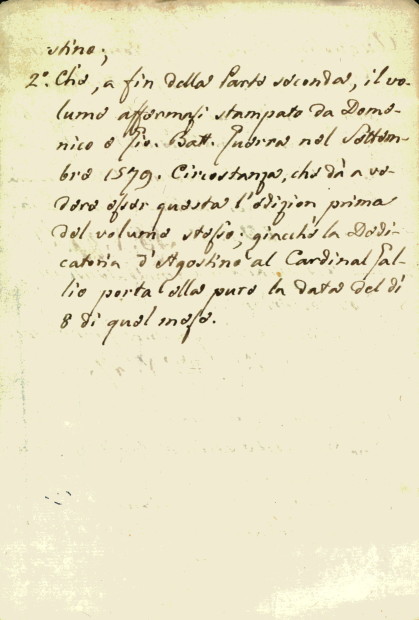 stino;
2.° Che, a fin della Parte seconda, il vo-
lume affermasi stampato da Dome-
nico e Gio. Batt. Guerra nel Settem-
bre 1579. Circostanza, che dà a ve-
dere esser questa l'edizion prima
del volume stesso; giacchè la Dedi-
catoria d'Agostino al Cardinal Gal-
lio porta ella pure la data del dì
8 di quel mese.